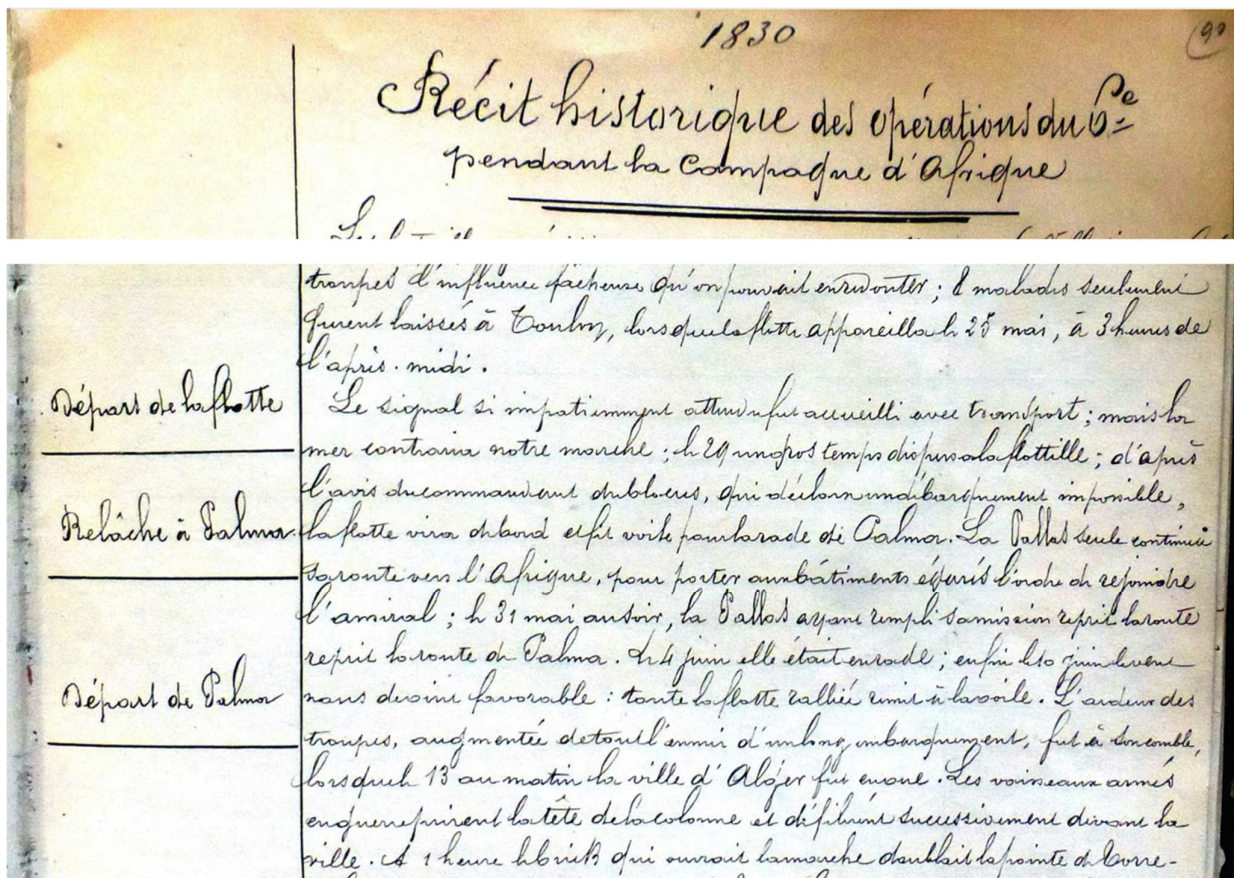 1830
90
Récit historique des opérations du 6e
pendant la Campagne d'Afrique
troupes d'influence fâcheuse qu'on pouvait en redouter ; 8 malades seulement
furent laissés à Toulon, lorsque la flotte appareilla le 25 mai, à 3 heures de
l'après-midi.
Départ de la flotte
Le signal si impatiemment attendu fut accueilli avec transport ; mais la
mer contraria notre marche ; le 29 un gros temps dispersa la flottille ; d'après
l'avis du commandant du blocus, qui déclara un débarquement impossible,
Relâche à Palma
la flotte vira de bord et fit voile pour la rade de Palma. La Pallas seule continua
sa route vers l'Afrique, pour porter aux bâtiments égarés l'ordre de rejoindre
l'amiral ; le 31 mai au soir, la Pallas ayant rempli sa mission reprit la route
reprit la route de Palma. Le 4 juin elle était en rade ; enfin le 10 juin le vent
Départ de Palma
nous devint favorable : toute la flotte ralliée remit à la voile. L'ardeur des
troupes, augmentée de tout l'ennui d'un long embarquement, fut à son comble,
lorsque le 13 au matin la ville d'Alger fut en vue. Les vaisseaux armés
en guerre prirent la tête de la colonne et défilèrent successivement devant la
ville. A 1 heure le brick qui ouvrait la marche doublait la pointe de Torre-